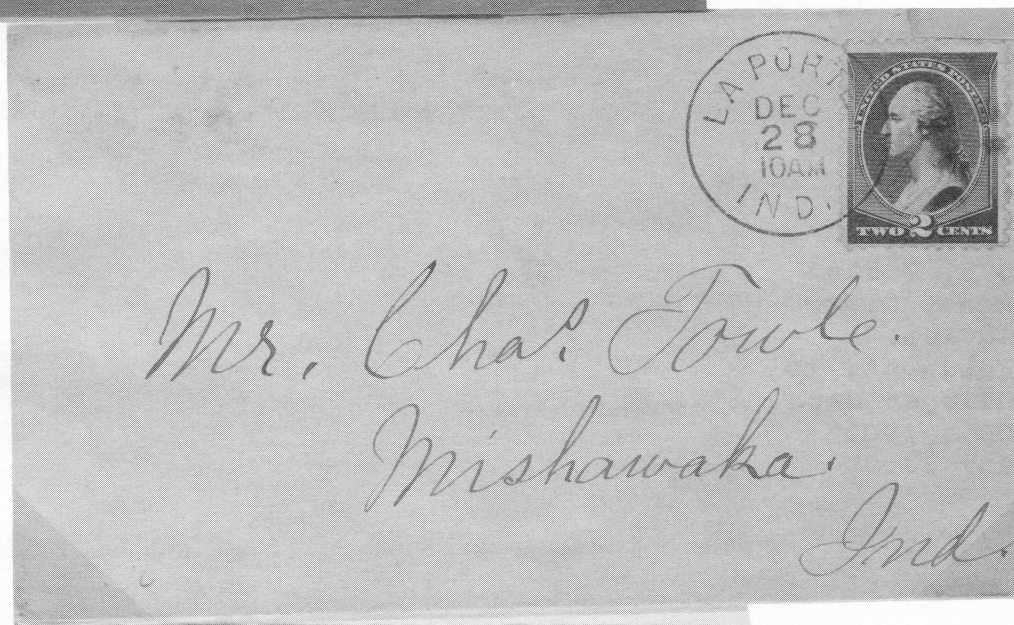 LA PORT
DEC
28
10AM
IND.
UNITED STATES POSTAGE
TWO 2 CENTS
Mr. Chas. Towle.
Mishawaka.
Ind.